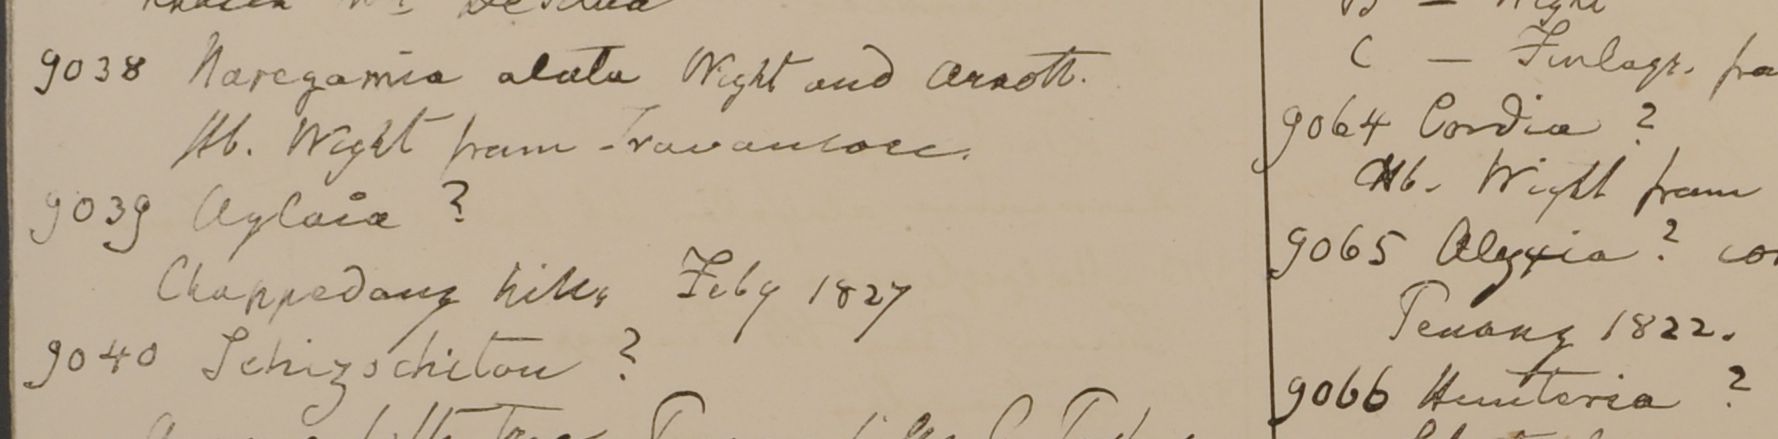 9038 Naregamia alata Wight and Arnott.
Hb. Wight from Travancore.
9039 Aglaia ?
Chappedong hills Feby 1827
9040 Schizochiton ?
B — Wight
C — Finlays.
9064 Cordia ?
Hb. Wight from
9065 Alyxia ?
Penang 1822.
9066 Hunteria ?